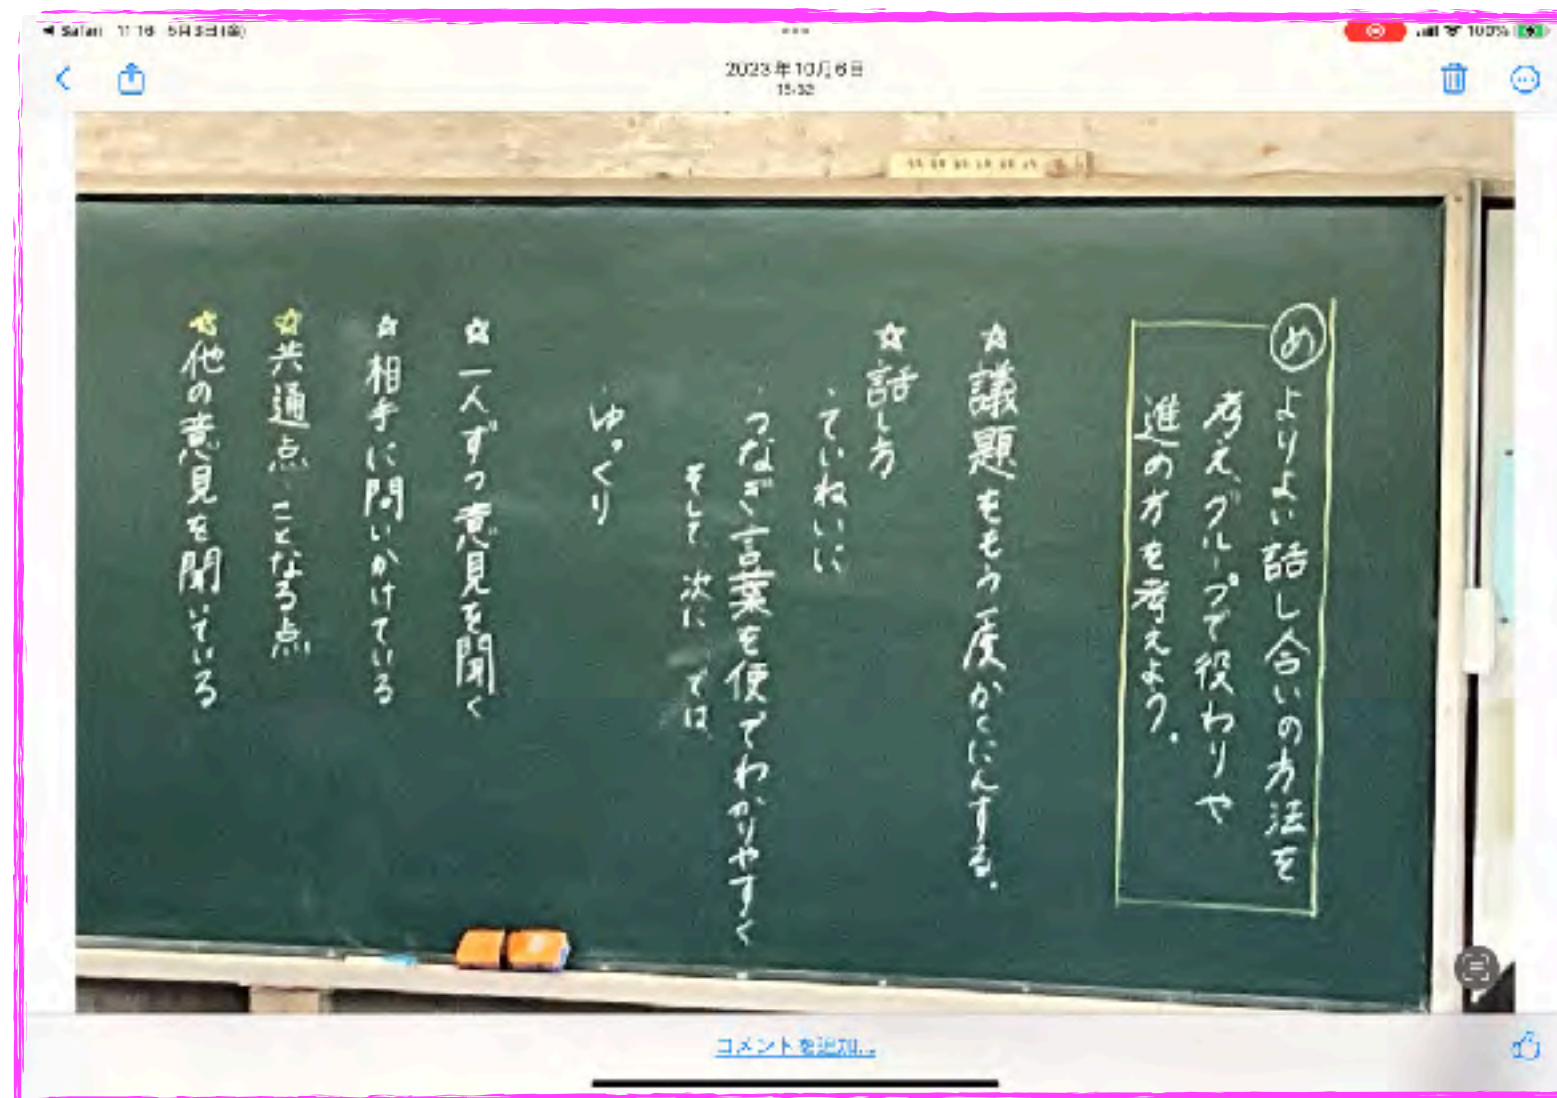 Safari 11:16 5月3日(金)
100%
2023年10月6日
15:32
め よりよい話し合いの方法を
考え、グループで役わりや
進め方を考えよう。
☆議題をもう一度かくにんする。
☆話し方
・ていねいに
・つなぎ言葉を使ってわかりやすく
そして 次に では
ゆっくり
☆一人ずつ意見を聞く
☆相手に問いかけている
☆共通点・ことなる点
☆他の意見を聞いている
コメントを追加...